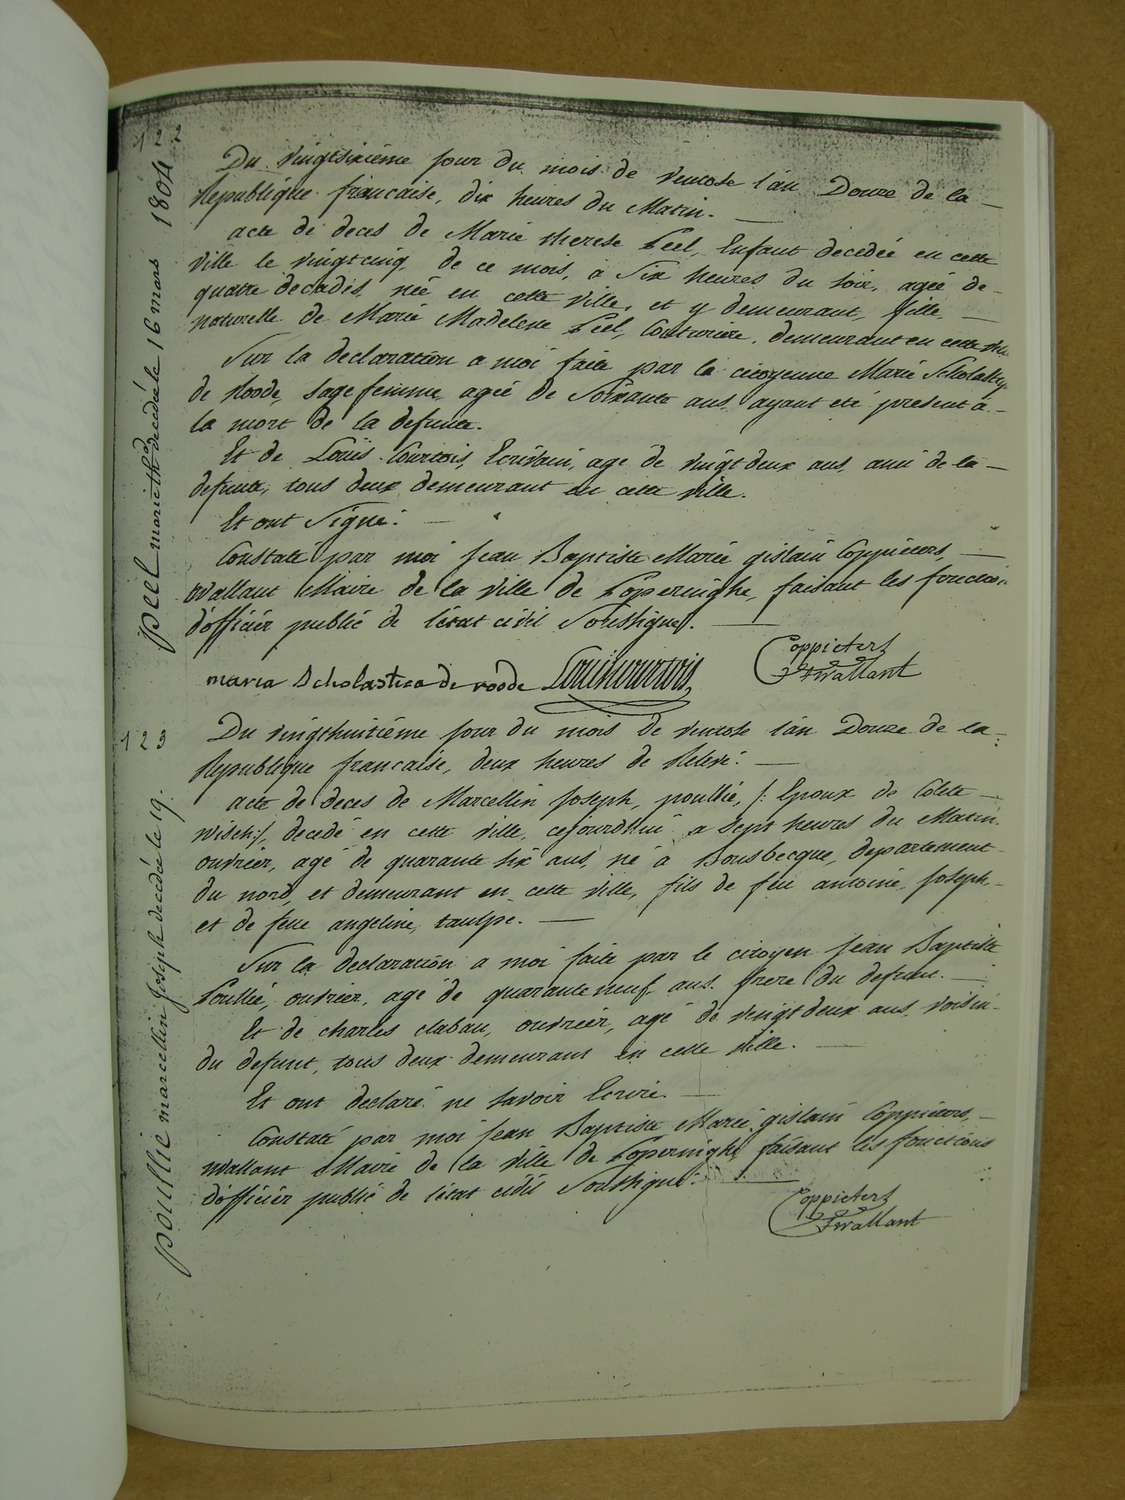 122
1804
peel marie th. decedée le 16 mars
Du vingtsixiéme jour du mois de ventose l'an Douze de la
Republique française, dix heures du Matin.
acte de deces de Marie therese Peel, Enfant decedée en cette
ville le vingtcinq de ce mois, à Six heures du soir, agée de
quatre decades, née en cette ville, et y demeurant, fille
naturelle de Marie Madelene Peel, Couturiere, demeurant en cette ville
Sur la declaration a moi faite par la citoyenne Marie Scholastiq
de Roode, sage femme, agée de Soixante ans, ayant eté present à
la mort de la defunte.
Et de Louis Courtois, Ecrivain, agé de vingt deux ans, ami de la
defunte, tous deux demeurant en cette ville.
Et ont Signé.
Constaté par moi Jean Baptiste Marie gislain Coppieters
wallant Maire de la ville de Poperinghe, faisant les fonctions
d'officier public de l'état civil Soussigné.
maria Scholastica de roode Louis courtois Coppieters
Twallant
123
poullie marcellin joseph decédé le 19.
Du vingthuitiéme jour du mois de ventose l'an Douze de la
Republique française, deux heures de Relevé.
acte de deces de Marcellin Joseph, poullié, /: Epoux de Colette
wisch:/, decedé en cette ville, cejourdhui a Sept heures du Matin.
ouvrier, agé de quarante six ans, né à Bousbecque, departement
du nord, et demeurant en cette ville, fils de feu antoine, joseph,
et de feue angeline, taulpe.
Sur la declaration a moi faite par le citoyen Jean Baptiste
Poullié, ouvrier, agé de quaranteneuf ans. frere du defunt.
Et de charles clabau, ouvrier, agé de vingt deux ans, voisin
du defunt, tous deux demeurant en cette ville.
Et ont declaré ne savoir Ecrire.
Constaté par moi Jean Baptiste Marie gislain Coppieters,
wallant Maire de la ville de Poperinghe faisant les fonctions
d'officier public de l'état civil Soussigné.
Coppieters
Twallant